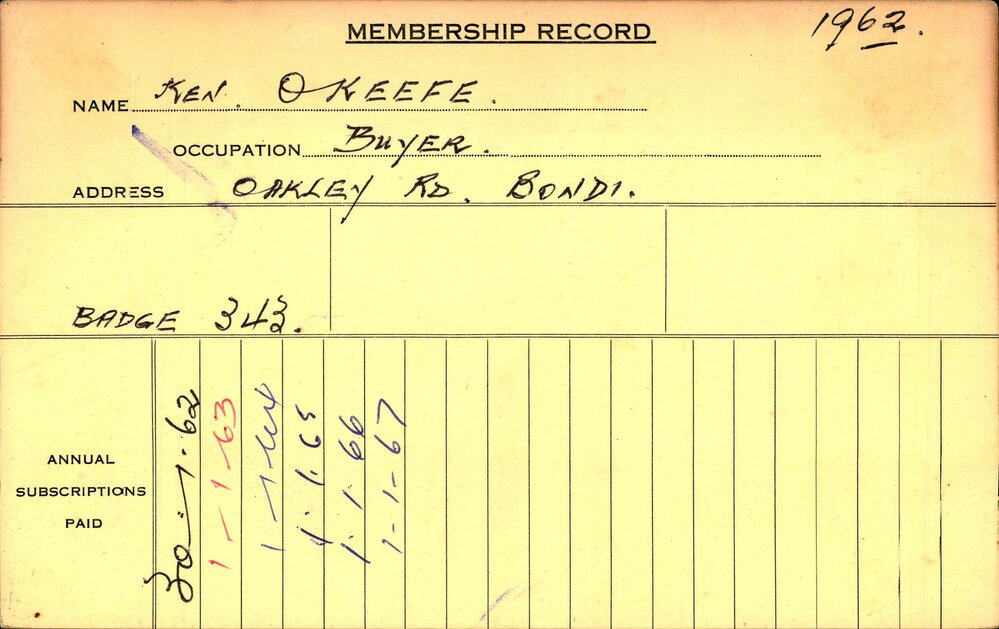 MEMBERSHIP RECORD
1962.
NAME KEN. OKEEFE.
OCCUPATION BUYER.
ADDRESS OAKLEY RD. BONDI.
BADGE 343.
ANNUAL
SUBSCRIPTIONS
PAID
30-1-62
1-1-63
1-1-64
1.1.65
1.1.66
1-1-67